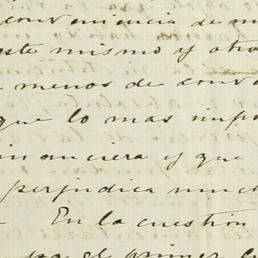 conveniencia de m
este mismo y otro
menos de conv
que lo mas impo
financiera y que
perjudica much
En la cuestion
el primer